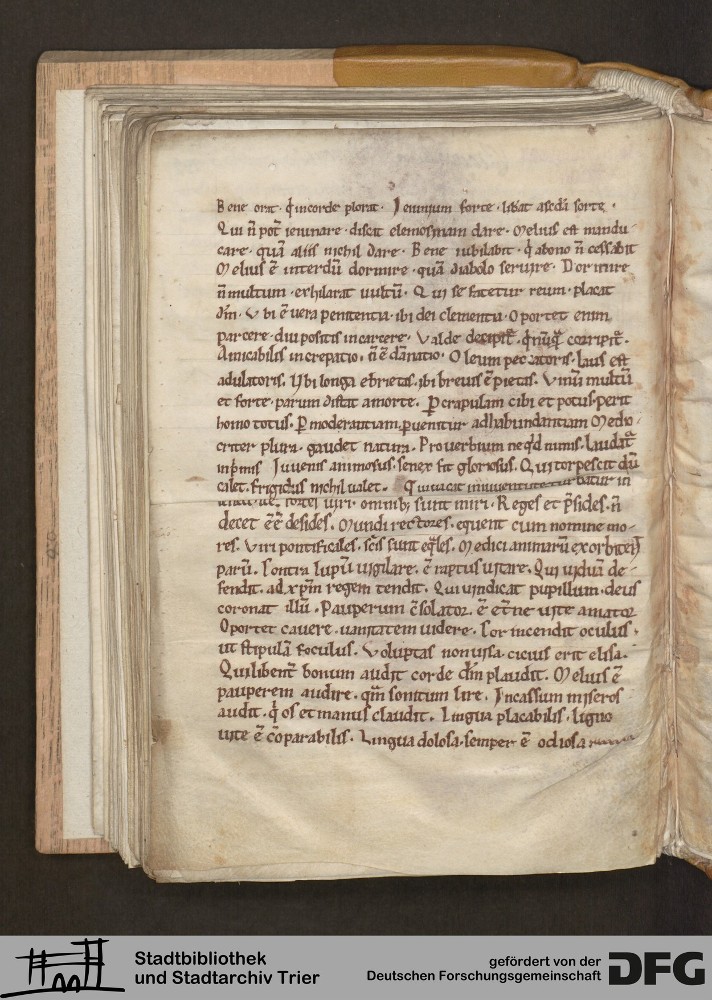 Bene orat · q̇ incorde plorat · Ieiunium forte · libat ascdi sorte ·
Qui n̄ pot̄ ieiunare · discit elemosinam dare · Melius est mandu-
care · quā aliis nichil dare · Bene iubilabit · q̇ abono n̄ cessabit
Melius ē interdū dormire · quā diabolo seruire · Dormire
n̄ multum · exhilarat uultū · Qui se fatetur reum · placat
dm̄ · Vbi ē uera penitentia · ibi dei clementia · Oportet enim
parcere · diu positis in carcere · Valde decipit᷑ · q̇ nūq̄ corripit᷑ ·
Amicabilis increpatio · n̄ ē dānatio · Oleum peccatoris · laus est
adulatoris. Vbi longa ebrietas · ibi breuis ē pietas. Vinū multū
et forte · parum distat amorte. Ꝑ crapulam cibi et potus · perit
homo totus. Ꝑ moderantiam · ꝑuenitur adhabundantiam Medio-
criter plura · gaudet natura. Prouerbium neqd nimis · laudat᷑
inp̄mis Iuuenis animosus · senex fit gloriosus. Qui torpescit dū
calet · frigidus nichil ualet ·
fortes uiri · omnib; sunt miri · Reges et p̄sides · n̄
decet eē desides. Mundi rectores · equent cum nomine mo-
res. Viri pontificales · scīs sunt eq̄les. Medici animarū exorbitent
parū. Contra lupū uigilare · ē raptus uitare. Qui uiduā de-
fendit · ad xp̄m regem tendit. Qui uindicat pupillum · deus
coronat illū. Pauperum ꝯsolator · ē et̄ne uite amator
Oportet cauere · uanitatem uidere. Cor incendit oculus ·
ut stipulā foculus. Voluptas non uisa · cicius erit elisa.
Qui libent᷑ bonum audit corde dm̄ plaudit. Melius ē
pauperem audire · qm̄ sonitum lire. Incassum miseros
audit · q̇ os et manus claudit. Lingua placabilis · ligno
uite ē cōparabilis. Lingua dolosa · semper ē odiosa
Stadtbibliothek
und Stadtarchiv Trier
gefördert von der
Deutschen Forschungsgemeinschaft
DFG